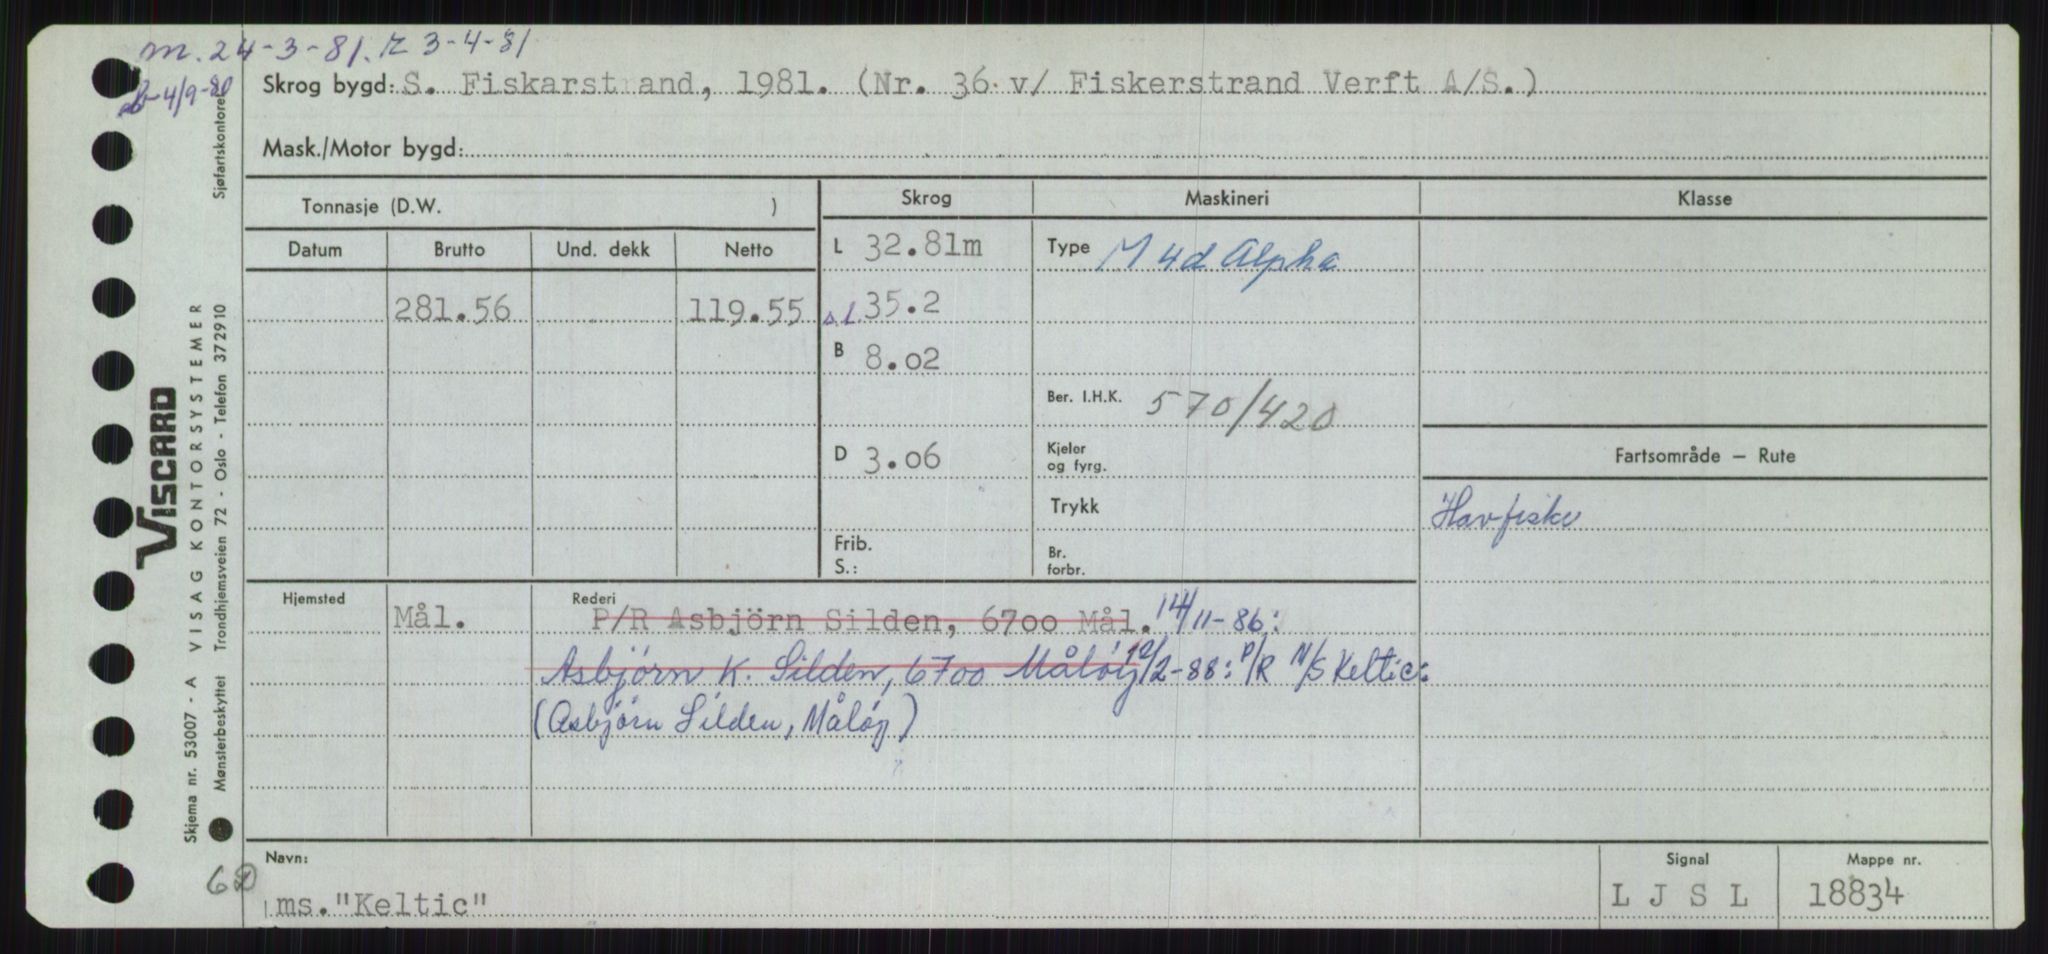 m. 24-3-81. r 3-4-81
4/9-80
Skrog bygd: S. Fiskarstrand, 1981. (Nr. 36 v/ Fiskerstrand Verft A/S.)
Mask./Motor bygd:
Tonnasje (D.W. )
Skrog
Maskineri
Klasse
Datum Brutto Und. dekk Netto
L 32.81m
Type M 4d Alpha
281.56 119.55
ΔL 35.2
B 8.02
Ber. I.H.K. 570/420
D 3.06
Kjeler
og fyrg.
Fartsområde – Rute
Trykk
Havfiske
Frib.
S.:
Br.
forbr.
Hjemsted
Rederi
Mål.
P/R Asbjörn Silden, 6700 Mål. 14/11-86:
Asbjørn K. Silden, 6700 Måløy 12/2-88: P/R M/S Keltic:
(Asbjørn Silden, Måløy)
Navn:
ms. "Keltic"
Signal
L J S L
Mappe nr.
18834
Sjøfartskontoret
VISCARD
Skjema nr. 53007 - A VISAG KONTORSYSTEMER
Mønsterbeskyttet Trondhjemsveien 72 - Oslo - Telefon 372910